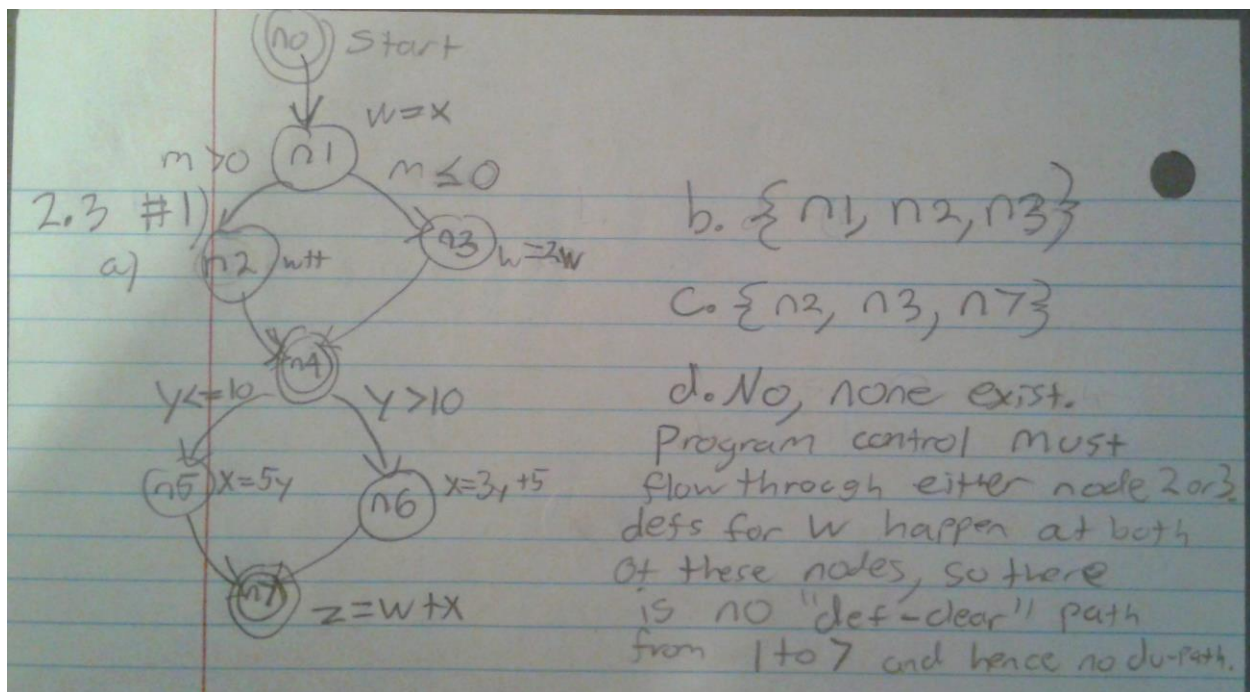 n0 Start
w=x
n1
m>0
m≤0
2.3 #1)
a)
n2 w++
n3 w=2w
n4
y<=10
y>10
n5 x=5y
n6 x=3y+5
n7 z=w+x
b. {n1, n2, n3}
c. {n2, n3, n7}
d. No, none exist.
Program control must
flow through either node 2 or 3.
defs for w happen at both
of these nodes, so there
is no "def-clear" path
from 1 to 7 and hence no du-path.